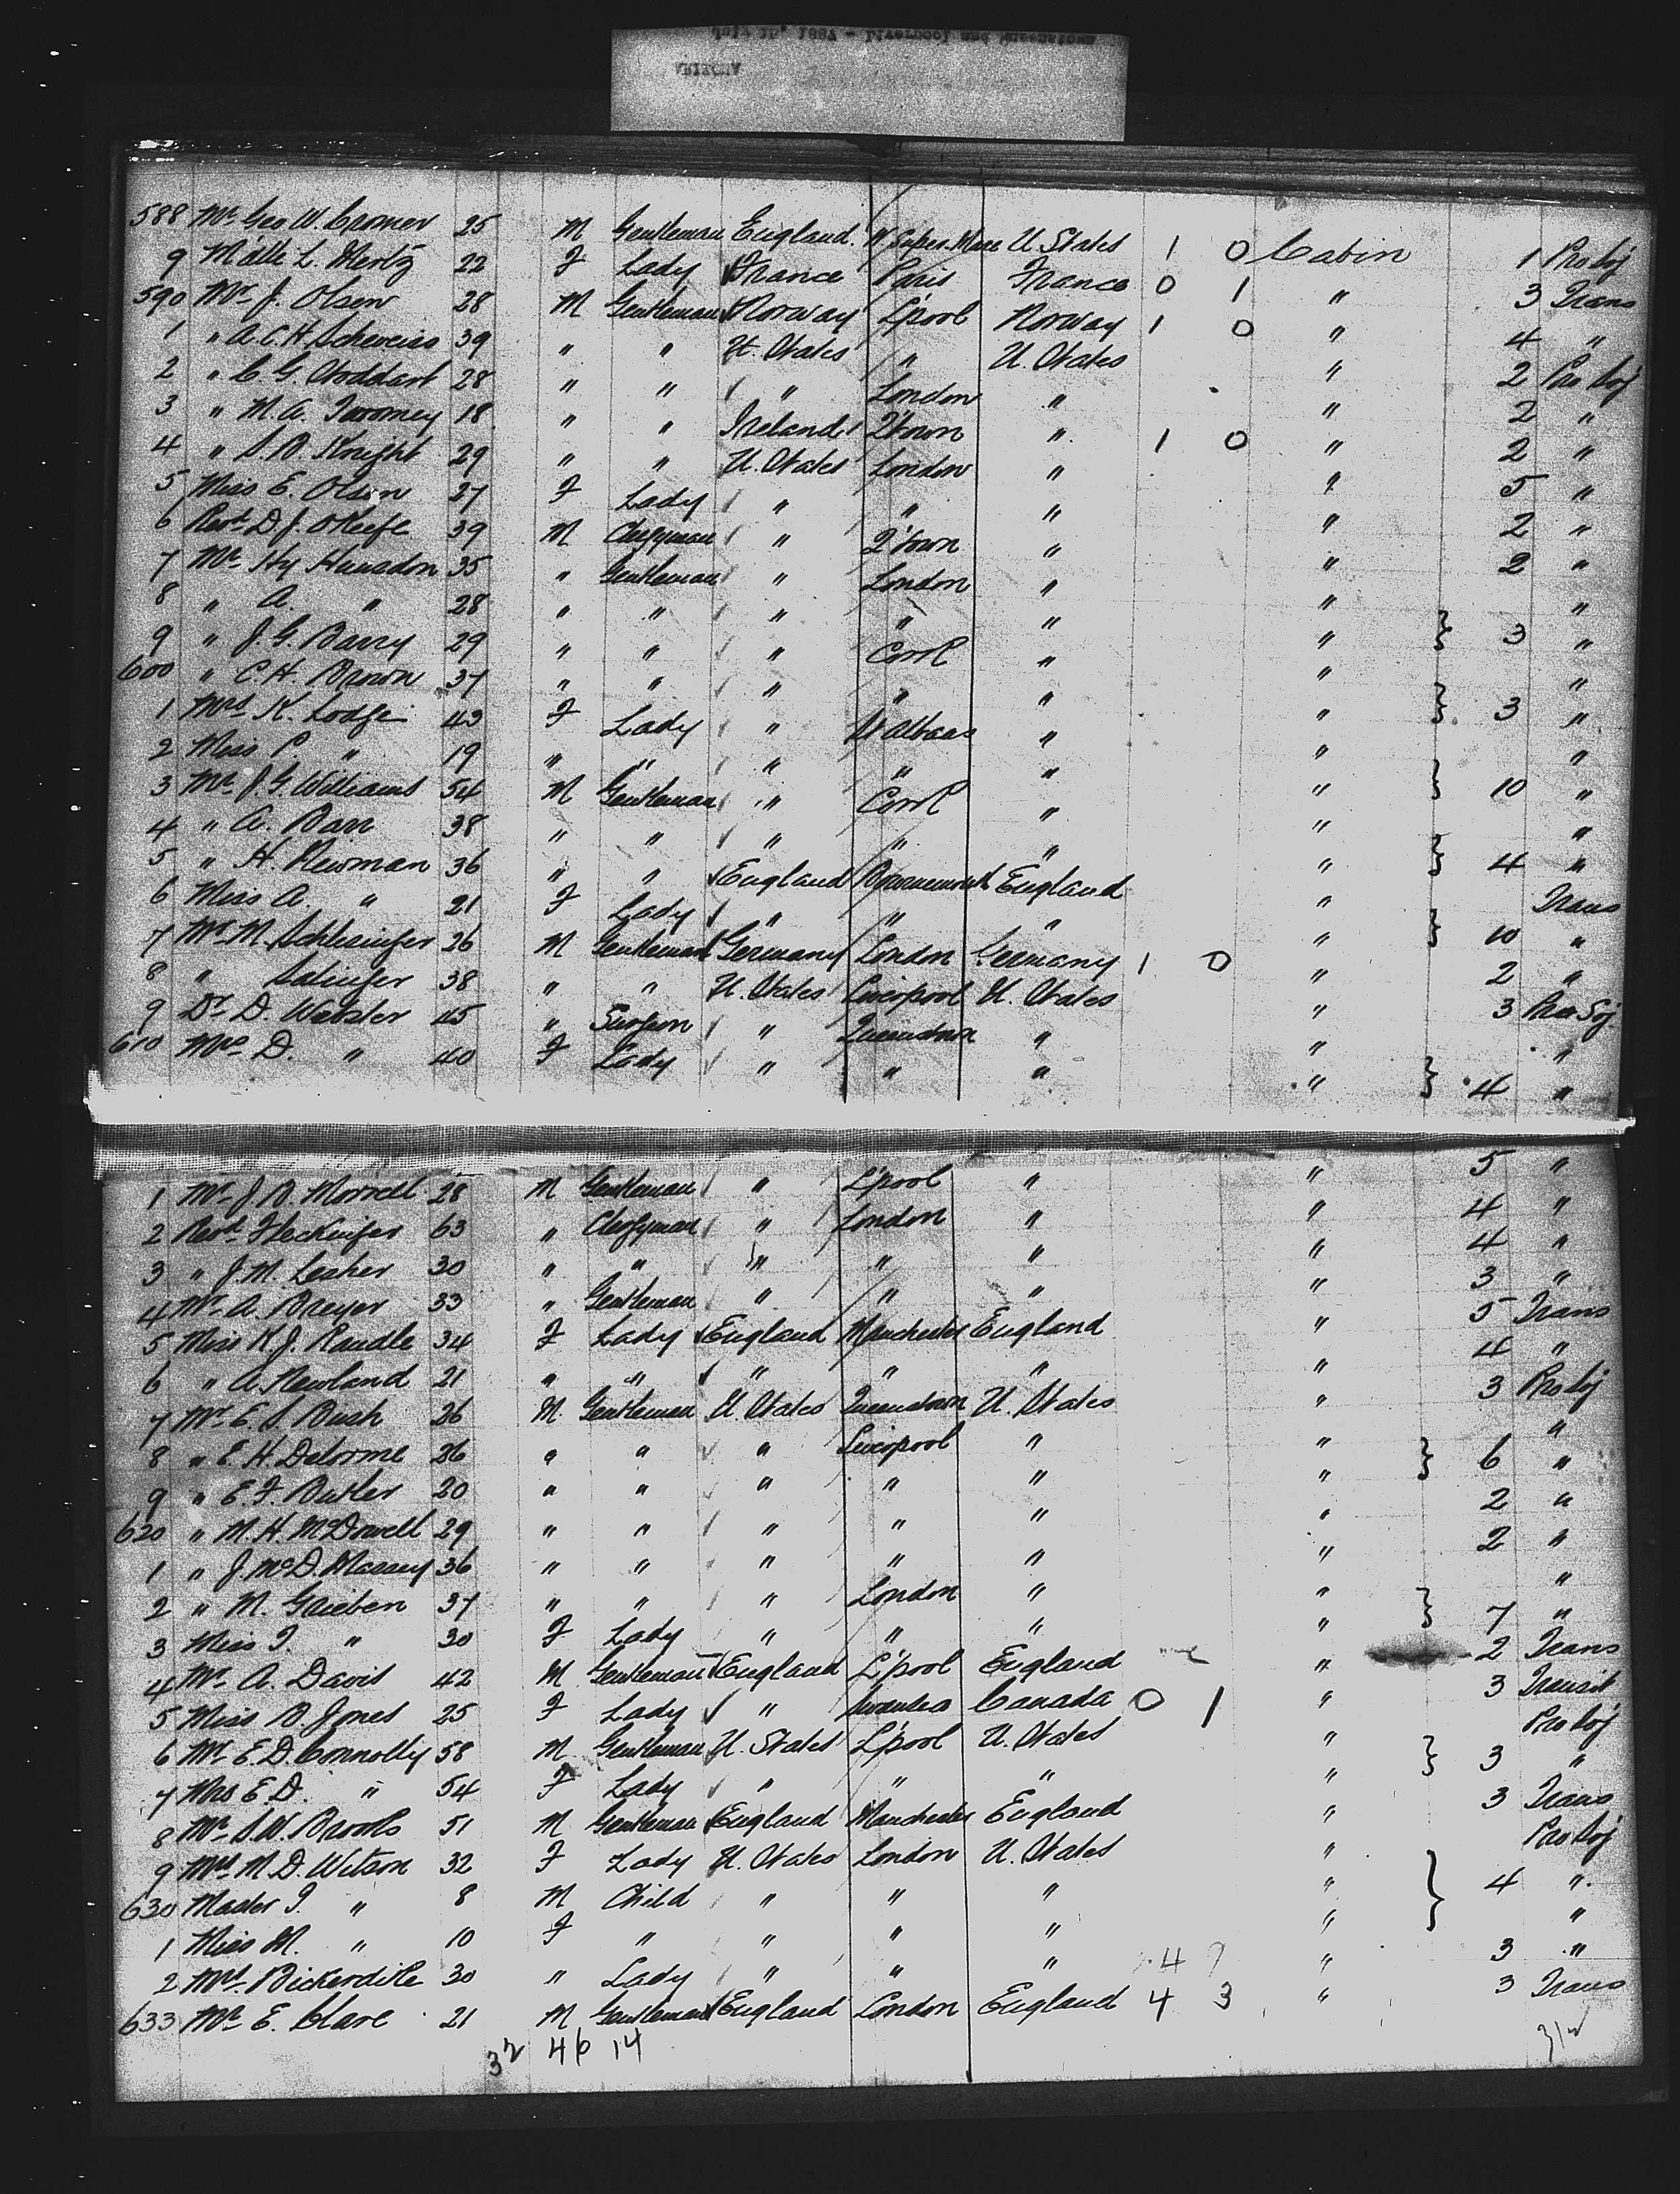 July 10, 1887 - Liverpool and Queenstown
ARIZONA
588 Mr Geo W. Cromer 25 M Gentleman England W Super Mare U. States 1 0 Cabin 1 Pro Soj
9 Mdlle L. Hertz 22 F Lady France Paris France 0 1 " 3 Trans
590 Mr J. Olsen 28 M Gentleman Norway L'pool Norway 1 0 " 4 "
1 " A.C.H. Schweiss 39 " " U. States " U. States " 2 Pro Soj
2 " C. G. Stoddart 28 " " " London " " 2 "
3 " M. A. Twomey 18 " " Ireland Q'town " 1 0 " 2 "
4 " S. B. Knight 29 " " U. States London " " 5 "
5 Miss E. Olsen 27 F Lady " " " " 2 "
6 Revd D. J. O'Keefe 39 M Clergyman " Q'town " " 2 "
7 Mr Hy Hunsdon 35 " Gentleman " London " " "
8 " A. " 28 " " " " " " } 3 "
9 " J. G. Barry 29 " " " Cork " " "
600 " C. H. Brown 37 " " " " " " } 3 "
1 Mrs K. Lodge 43 F Lady " St Albans " " "
2 Miss P " 19 " " " " " " } 10 "
3 Mr J. G. Williams 54 M Gentleman " Cork " " "
4 " A. Barr 38 " " " " " " } 4 "
5 " H. Newman 36 " " England Bournemouth England " Trans
6 Miss A. " 21 F Lady " " " " } 10 "
7 Mr M. Schlesinger 26 M Gentleman Germany London Germany 1 0 " 2 "
8 " Salinger 38 " " U. States Liverpool U. States " 3 Pro Soj
9 Dr D. Webster 45 " Surgeon " Queenstown " " "
610 Mrs D. " 40 F Lady " " " " } 4 "
1 Mr J. B. Morrell 28 M Gentleman " L'pool " " 5 "
2 Revd Fleckinger 63 " Clergyman " London " " 4 "
3 " J. M. Lesher 30 " " " " " " 4 "
4 Mr A. Breyer 33 " Gentleman " " " " 3 "
5 Miss K. J. Randle 34 F Lady England Manchester England " 5 Trans
6 " A. Newland 21 " " " " " " 4 "
7 Mr E. S. Bush 26 M. Gentleman U. States Queenstown U. States " 3 Pro Soj
8 " E. H. Delorme 26 " " " Liverpool " " "
9 " E. F. Butler 20 " " " " " " } 6 "
620 " M. H. McDowell 29 " " " " " " 2 "
1 " J. McD. Massey 36 " " " " " " 2 "
2 " M. Grieben 37 " " " London " " "
3 Miss I. " 30 F Lady " " " " } 7 "
4 Mr A. Davis 42 M Gentleman England L'pool England " 2 Trans
5 Miss B. Jones 25 F Lady " Swansea Canada 0 1 " 3 Transit
6 Mr E. D. Connolly 58 M Gentleman U. States L'pool U. States " Pro Soj
7 Mrs E. D. " 54 F Lady " " " " } 3 "
8 Mr S. W. Brooks 51 M Gentleman England Manchester England " 3 Trans
9 Mrs M. D. Wilson 32 F Lady U. States London U. States " Pro Soj
630 Master I. " 8 M Child " " " " } 4 "
1 Miss M. " 10 F " " " " " "
2 Mrs Bickerdike 30 " Lady " " " 4 " 3 "
633 Mr E. Clare 21 M Gentleman England London England 4 3 " 3 Trans
32 46 14